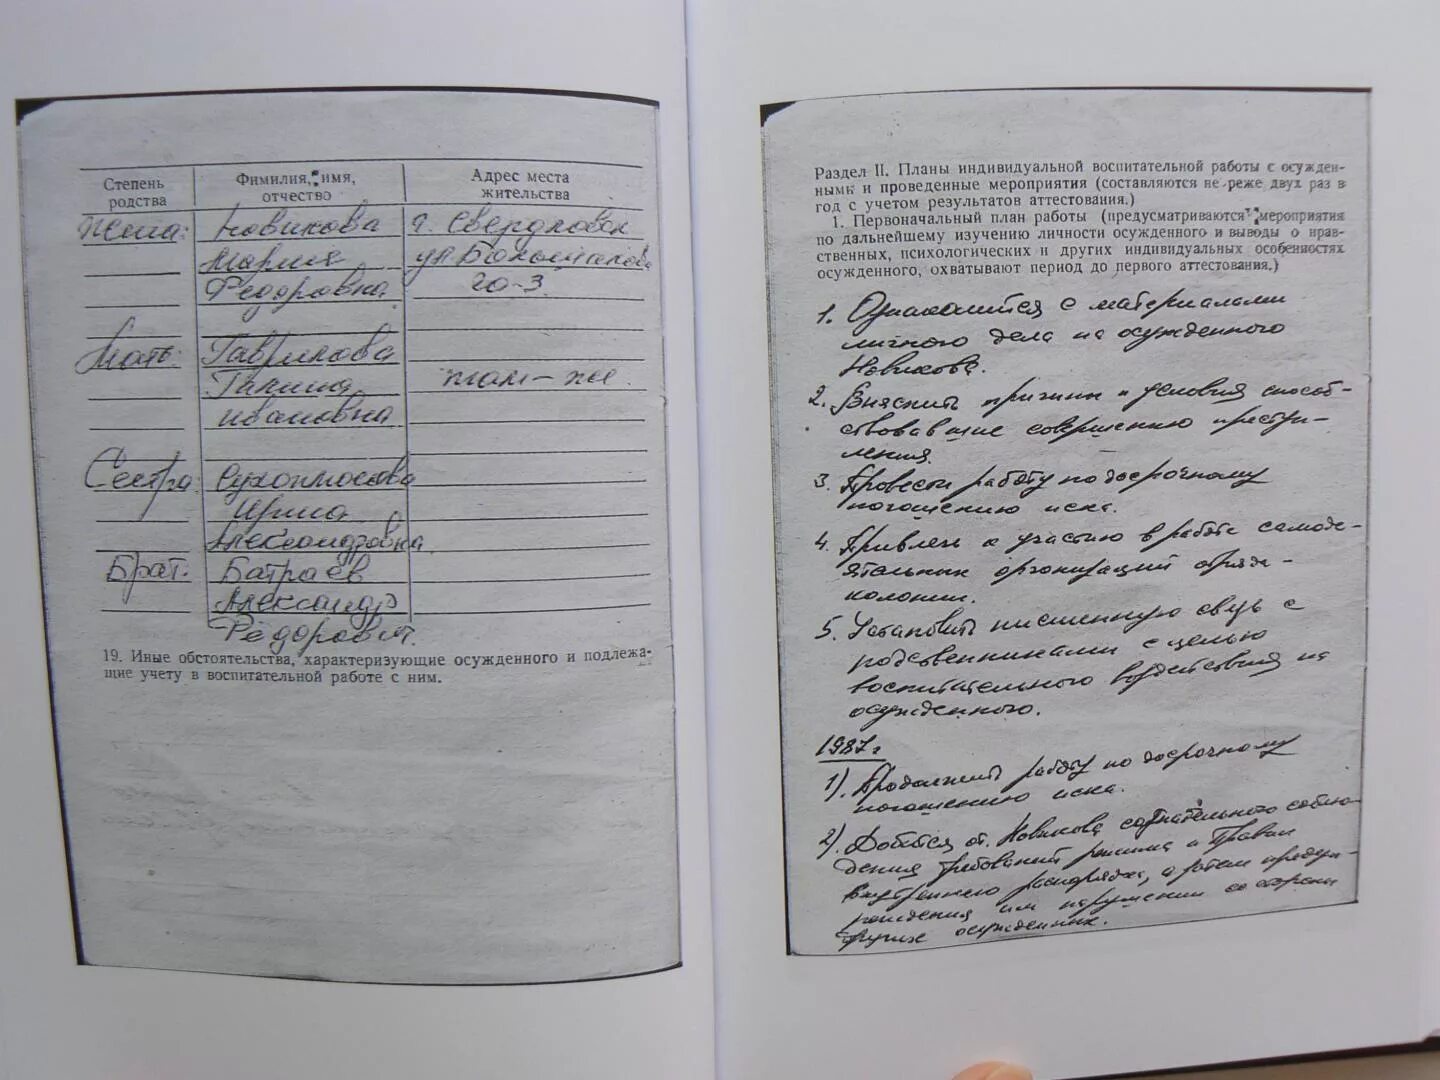 Степень родства
Фамилия, имя, отчество
Адрес места жительства
Жена: Новикова г. Свердловск
Мария ул.
Федоровна 20-3
Мать: Гаврилова
Галина там-же.
Ивановна
Сестра: Сухоплюсова
Ирина
Александровна.
Брат. Батраев
Александр
Федорович.
19. Иные обстоятельства, характеризующие осужденного и подлежа-
щие учету в воспитательной работе с ним.
Раздел II. Планы индивидуальной воспитательной работы с осужден-
ными и проведенные мероприятия (составляются не реже двух раз в
год с учетом результатов аттестования.)
1. Первоначальный план работы (предусматриваются мероприятия
по дальнейшему изучению личности осужденного и выводы о нрав-
ственных, психологических и других индивидуальных особенностях
осужденного, охватывают период до первого аттестования.)
1. Ознакомится с материалами
личного дела на осужденного
Новикова.
2. Выяснить причины и условия способ-
ствовавшие совершению преступ-
ления.
3. Провести работу по досрочному
погошению иска.
4. Привлечь к участию в работе самоде-
ятельных организаций отряда-
колонии.
5. Установить письменную связь с
родственниками с целью
воспитательного воздействия на
осужденного.
1987г
1). Продолжить работу по досрочному
погошению иска.
2). Добится от Новикова сознательного соблю-
дения требований режима и Правил
внутреннего распорядка, а затем предуп-
реждения им нарушении со стороны
других осужденных.